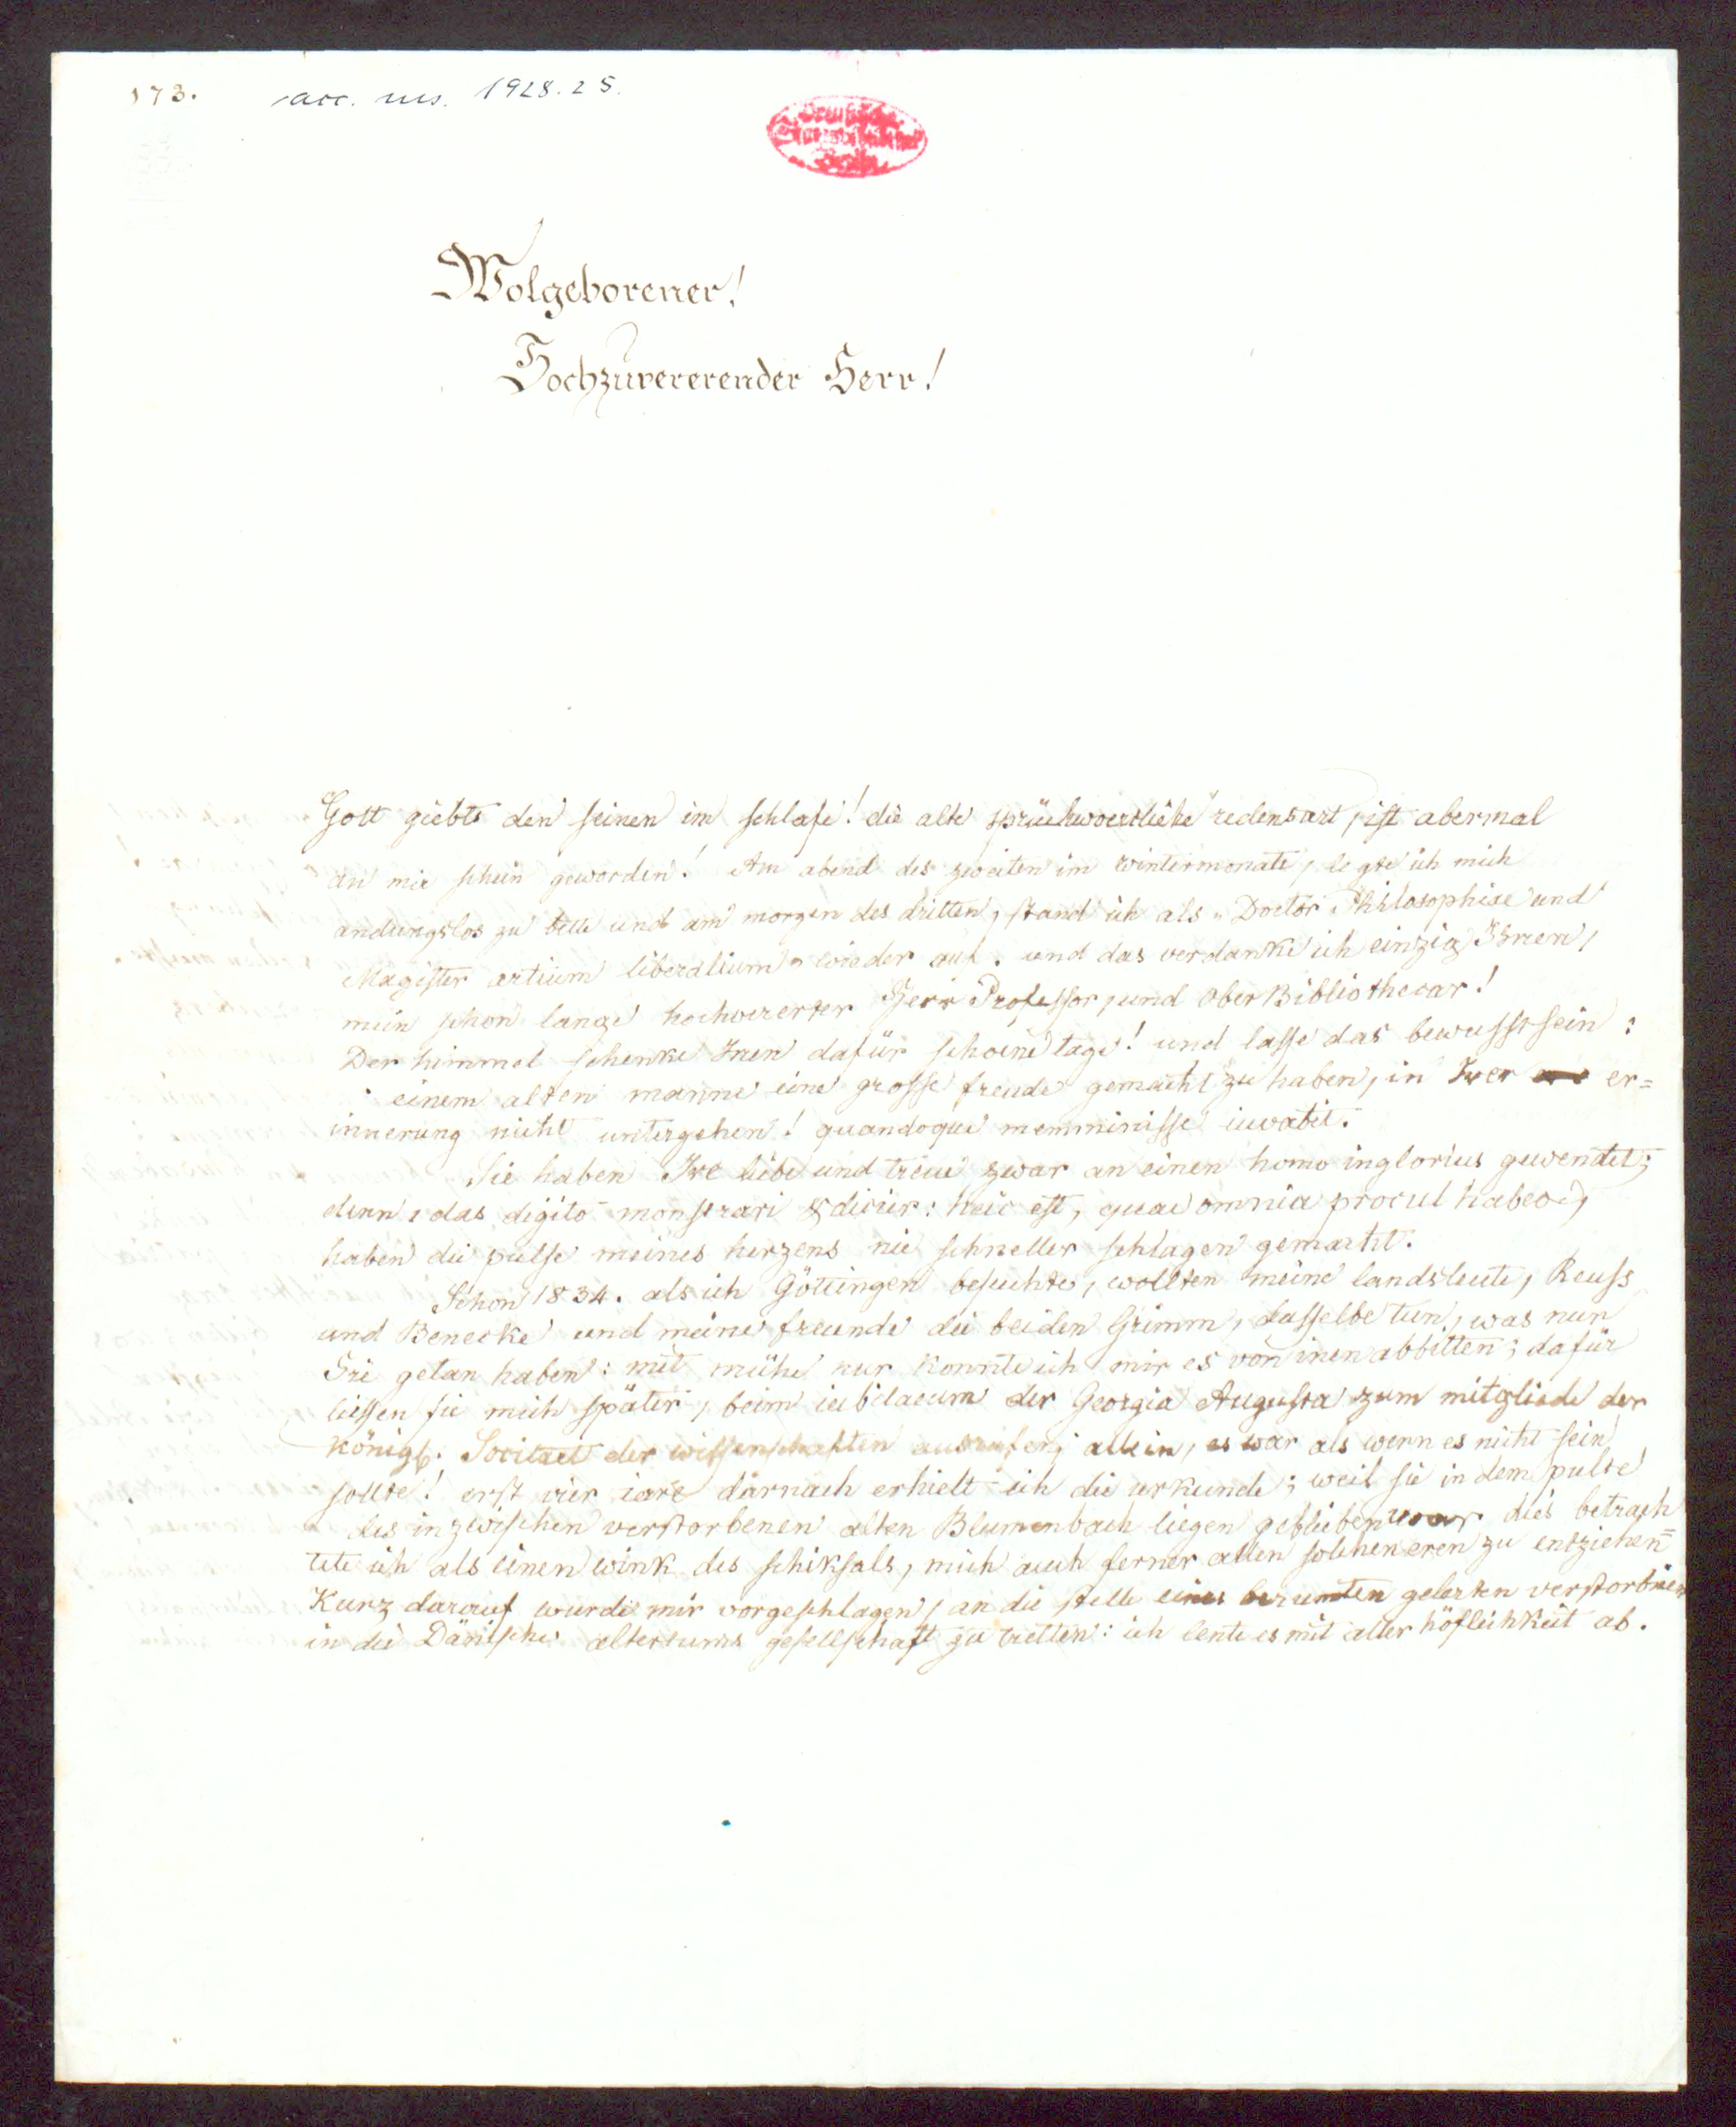 173. acc. ms. 1928. 25.
Wolgeborener!
Hochzuvererender Herr!
Gott giebts den seinen im schlafe! die alte sprüchwoertliche redensart, ist abermal
an mir schein geworden! Am abend des zweiten im wintermonate, legte ich mich
andungslos zu bette und am morgen des dritten, stand ich als „Doctor Philosophiae und
Magister artium liberalium" wieder auf. und das verdanke ich einzig Ihnen,
mein schon lange hochvererter Herr Professor, und OberBibliothecar!
Der himmel schenke Inen dafür schoene tage! und lasse das bewusstsein:
einem alten manne eine grosse freude gemacht zu haben, in Irer er=
innerung nicht untergehen! quandoque memminisse iuvabit.
Sie haben Ire liebe und treue zwar an einen homo inglorius gewendet;
denn, das digito monstrari & dicier: heic est, quae omnia procul habeo,
haben die pulse meines herzens nie schneller schlagen gemacht.
Schon 1834. als ich Göttingen besuchte, wollten meine landsleute, Reuss
und Benecke und meine freunde die beiden Grimm, dasselbe tun, was nun
Sie getan haben: mit mühe nur konnte ich mir es von inen abbitten; dafür
liessen sie mich später, beim iubilaeum der Georgia Augusta zum mitgliede der
königl. Societaet der wissenschaften ausrufen; allein, es war als wenn es nicht sein
sollte! erst vier iare darnach erhielt ich die urkunde; weil sie in dem pulte
des inzwischen verstorbenen alten Blumenbach liegen geblieben war dies betrach
tete ich als einen wink des schiksals, mich auch ferner allen solchen eren zu entziehen=
Kurz darauf wurde mir vorgeschlagen, an die stelle eines berumten gelerten verstorbnen
in die Dänische altertums gesellschaft zu tretten: ich lente es mit aller höflichkeit ab.